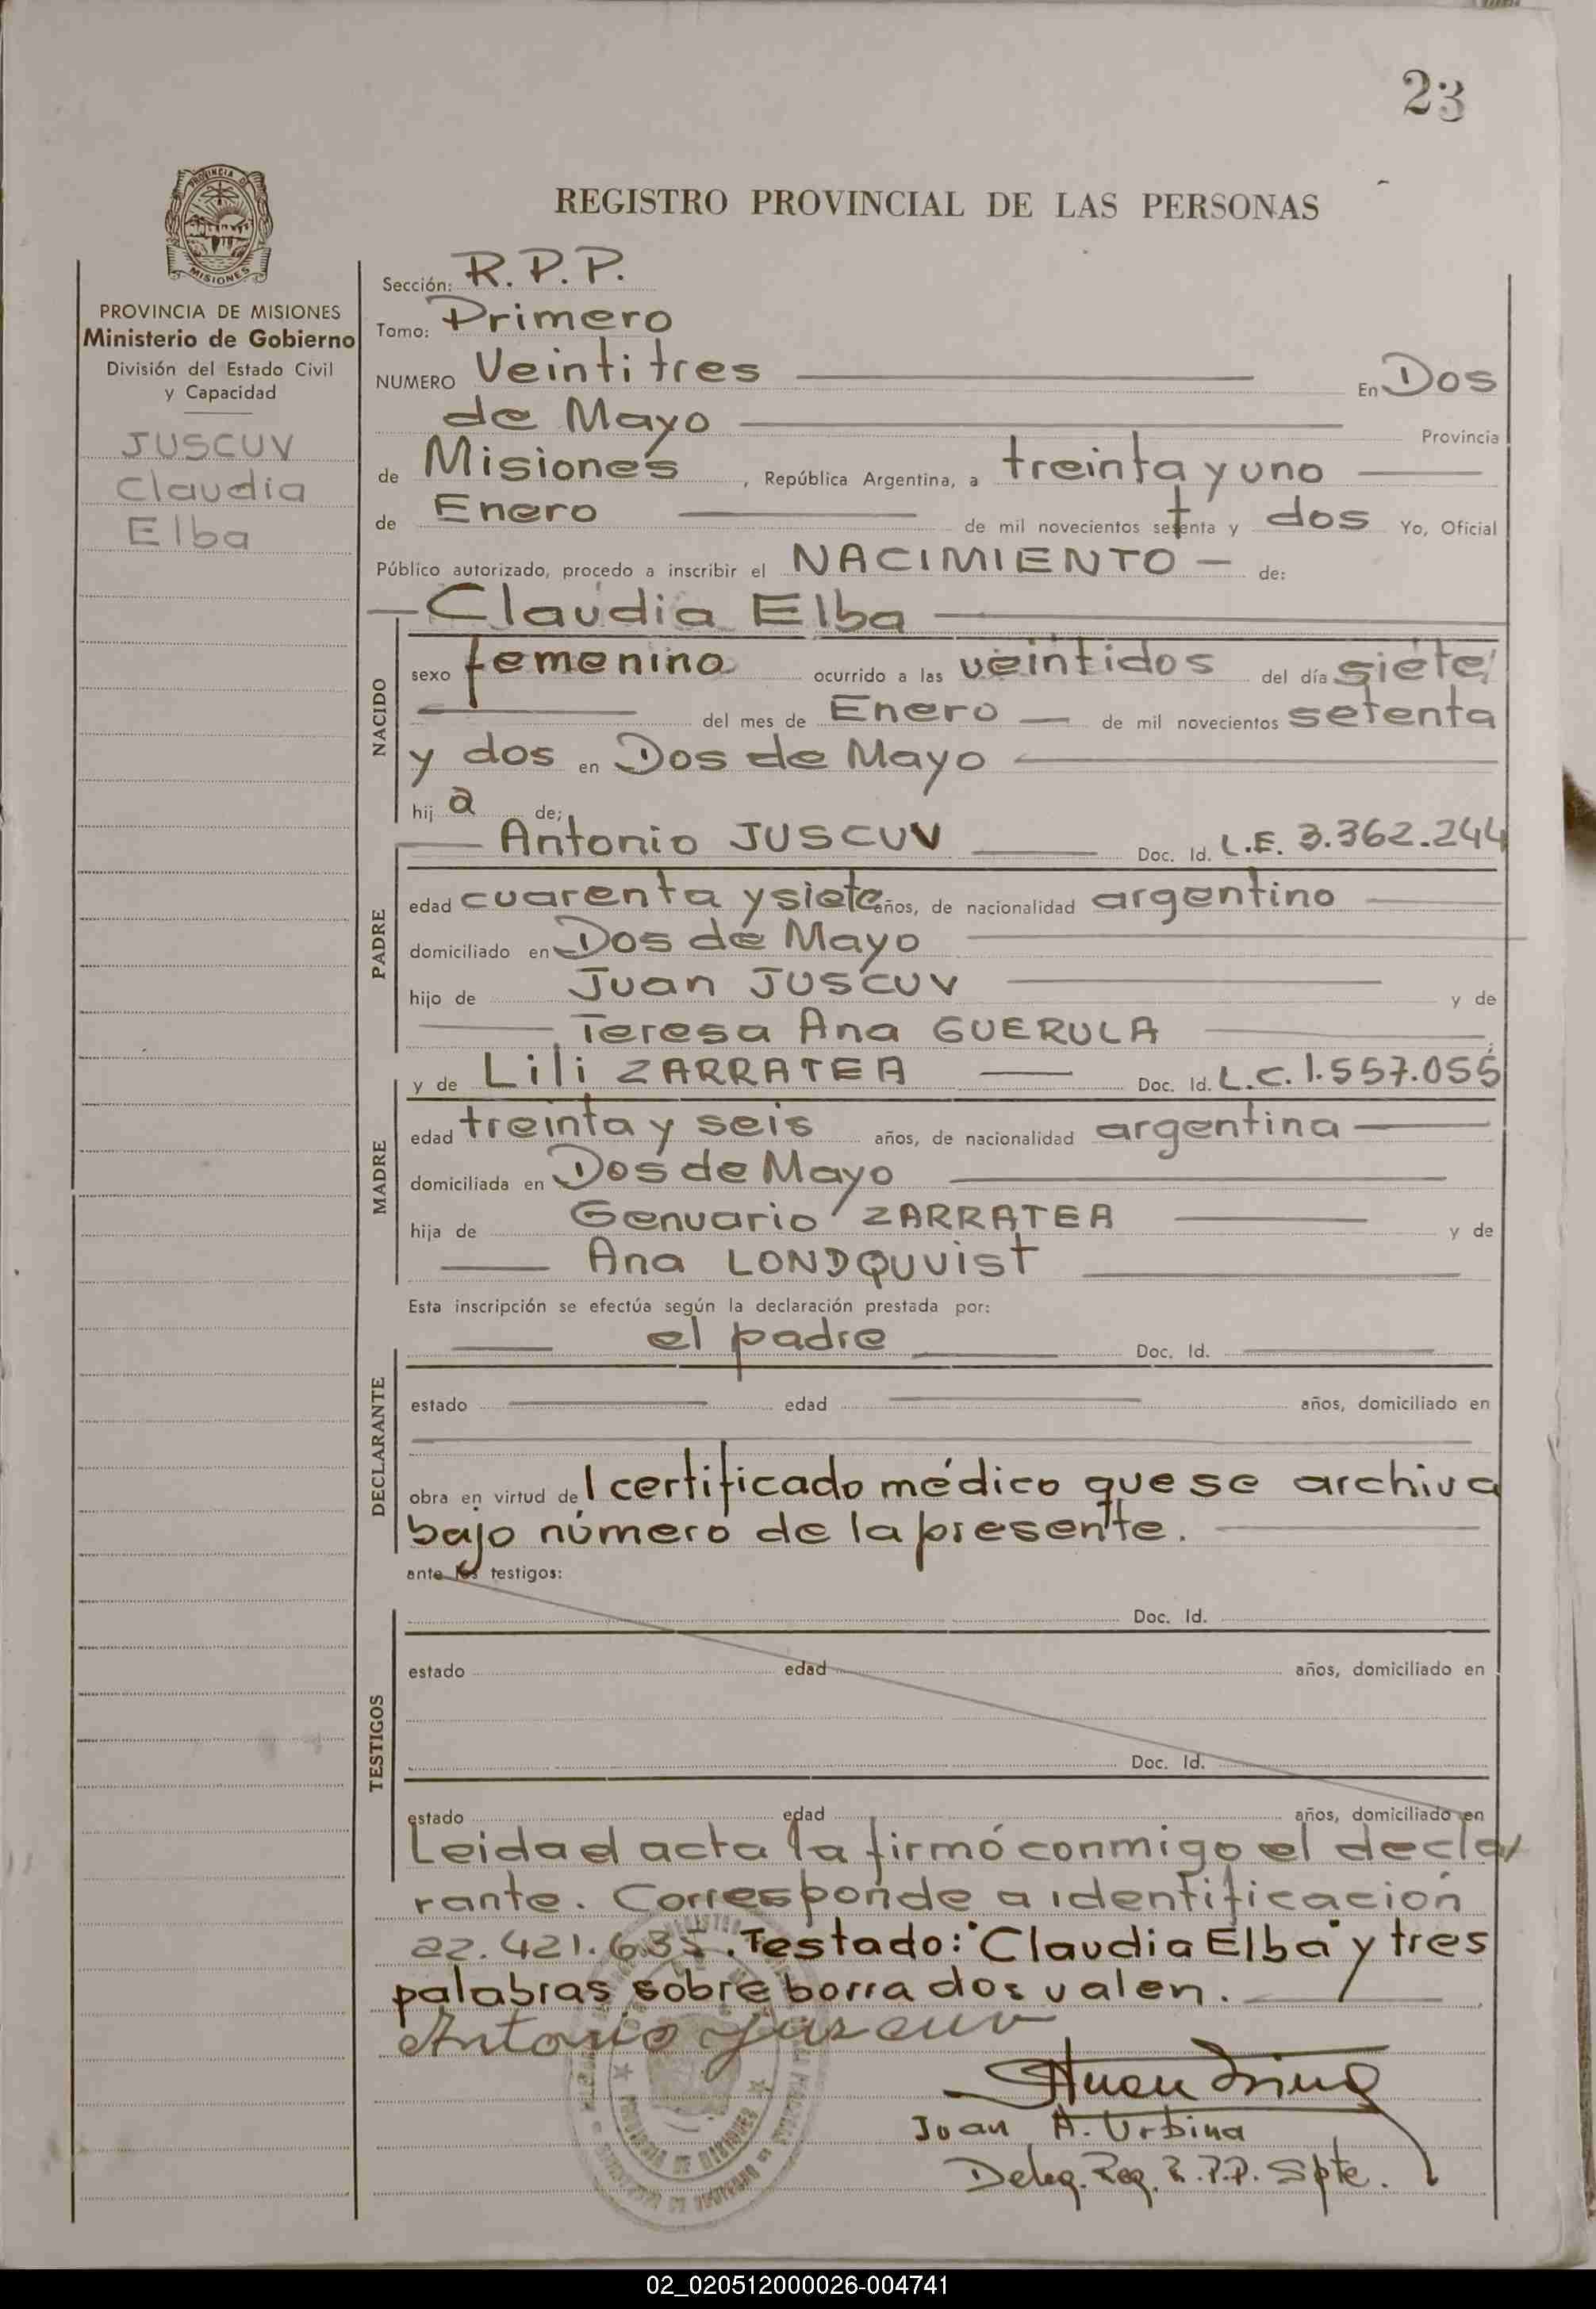 23
PROVINCIA DE
MISIONES
REGISTRO PROVINCIAL DE LAS PERSONAS
PROVINCIA DE MISIONES
Ministerio de Gobierno
División del Estado Civil
y Capacidad
JUSCUV
Claudia
Elba
Sección: R.P.P.
Tomo: Primero
NUMERO Veintitres En Dos
de Mayo Provincia
de Misiones, República Argentina, a treinta y uno
de Enero de mil novecientos setenta y dos Yo, Oficial
Público autorizado, procedo a inscribir el NACIMIENTO — de:
Claudia Elba
NACIDO
sexo femenino ocurrido a las veintidos del día siete
del mes de Enero — de mil novecientos setenta
y dos en Dos de Mayo
hij a de;
PADRE
Antonio JUSCUV Doc. Id. L.E. 3.362.244
edad cuarenta y siete años, de nacionalidad argentino
domiciliado en Dos de Mayo
hijo de Juan JUSCUV y de
Teresa Ana GUERULA
MADRE
y de Lili ZARRATEA Doc. Id. L.C. 1.557.055
edad treinta y seis años, de nacionalidad argentina
domiciliada en Dos de Mayo
hija de Genuario ZARRATEA y de
Ana LONDQUVIST
Esta inscripción se efectúa según la declaración prestada por:
DECLARANTE
el padre Doc. Id.
estado edad años, domiciliado en
obra en virtud de 1 certificado médico que se archiva
bajo número de la presente.
ante los testigos:
TESTIGOS
Doc. Id.
estado edad años, domiciliado en
Doc. Id.
estado edad años, domiciliado en
Leida el acta la firmó conmigo el decla
rante. Corresponde a identificación
22.421.635. Testado: "Claudia Elba" y tres
palabras sobre borrados valen.
Antonio Juscuv
Juan A. Urbina
Deleg. Reg. R.P.P. Spte.
PROVINCIA DE MISIONES
02_020512000026-004741